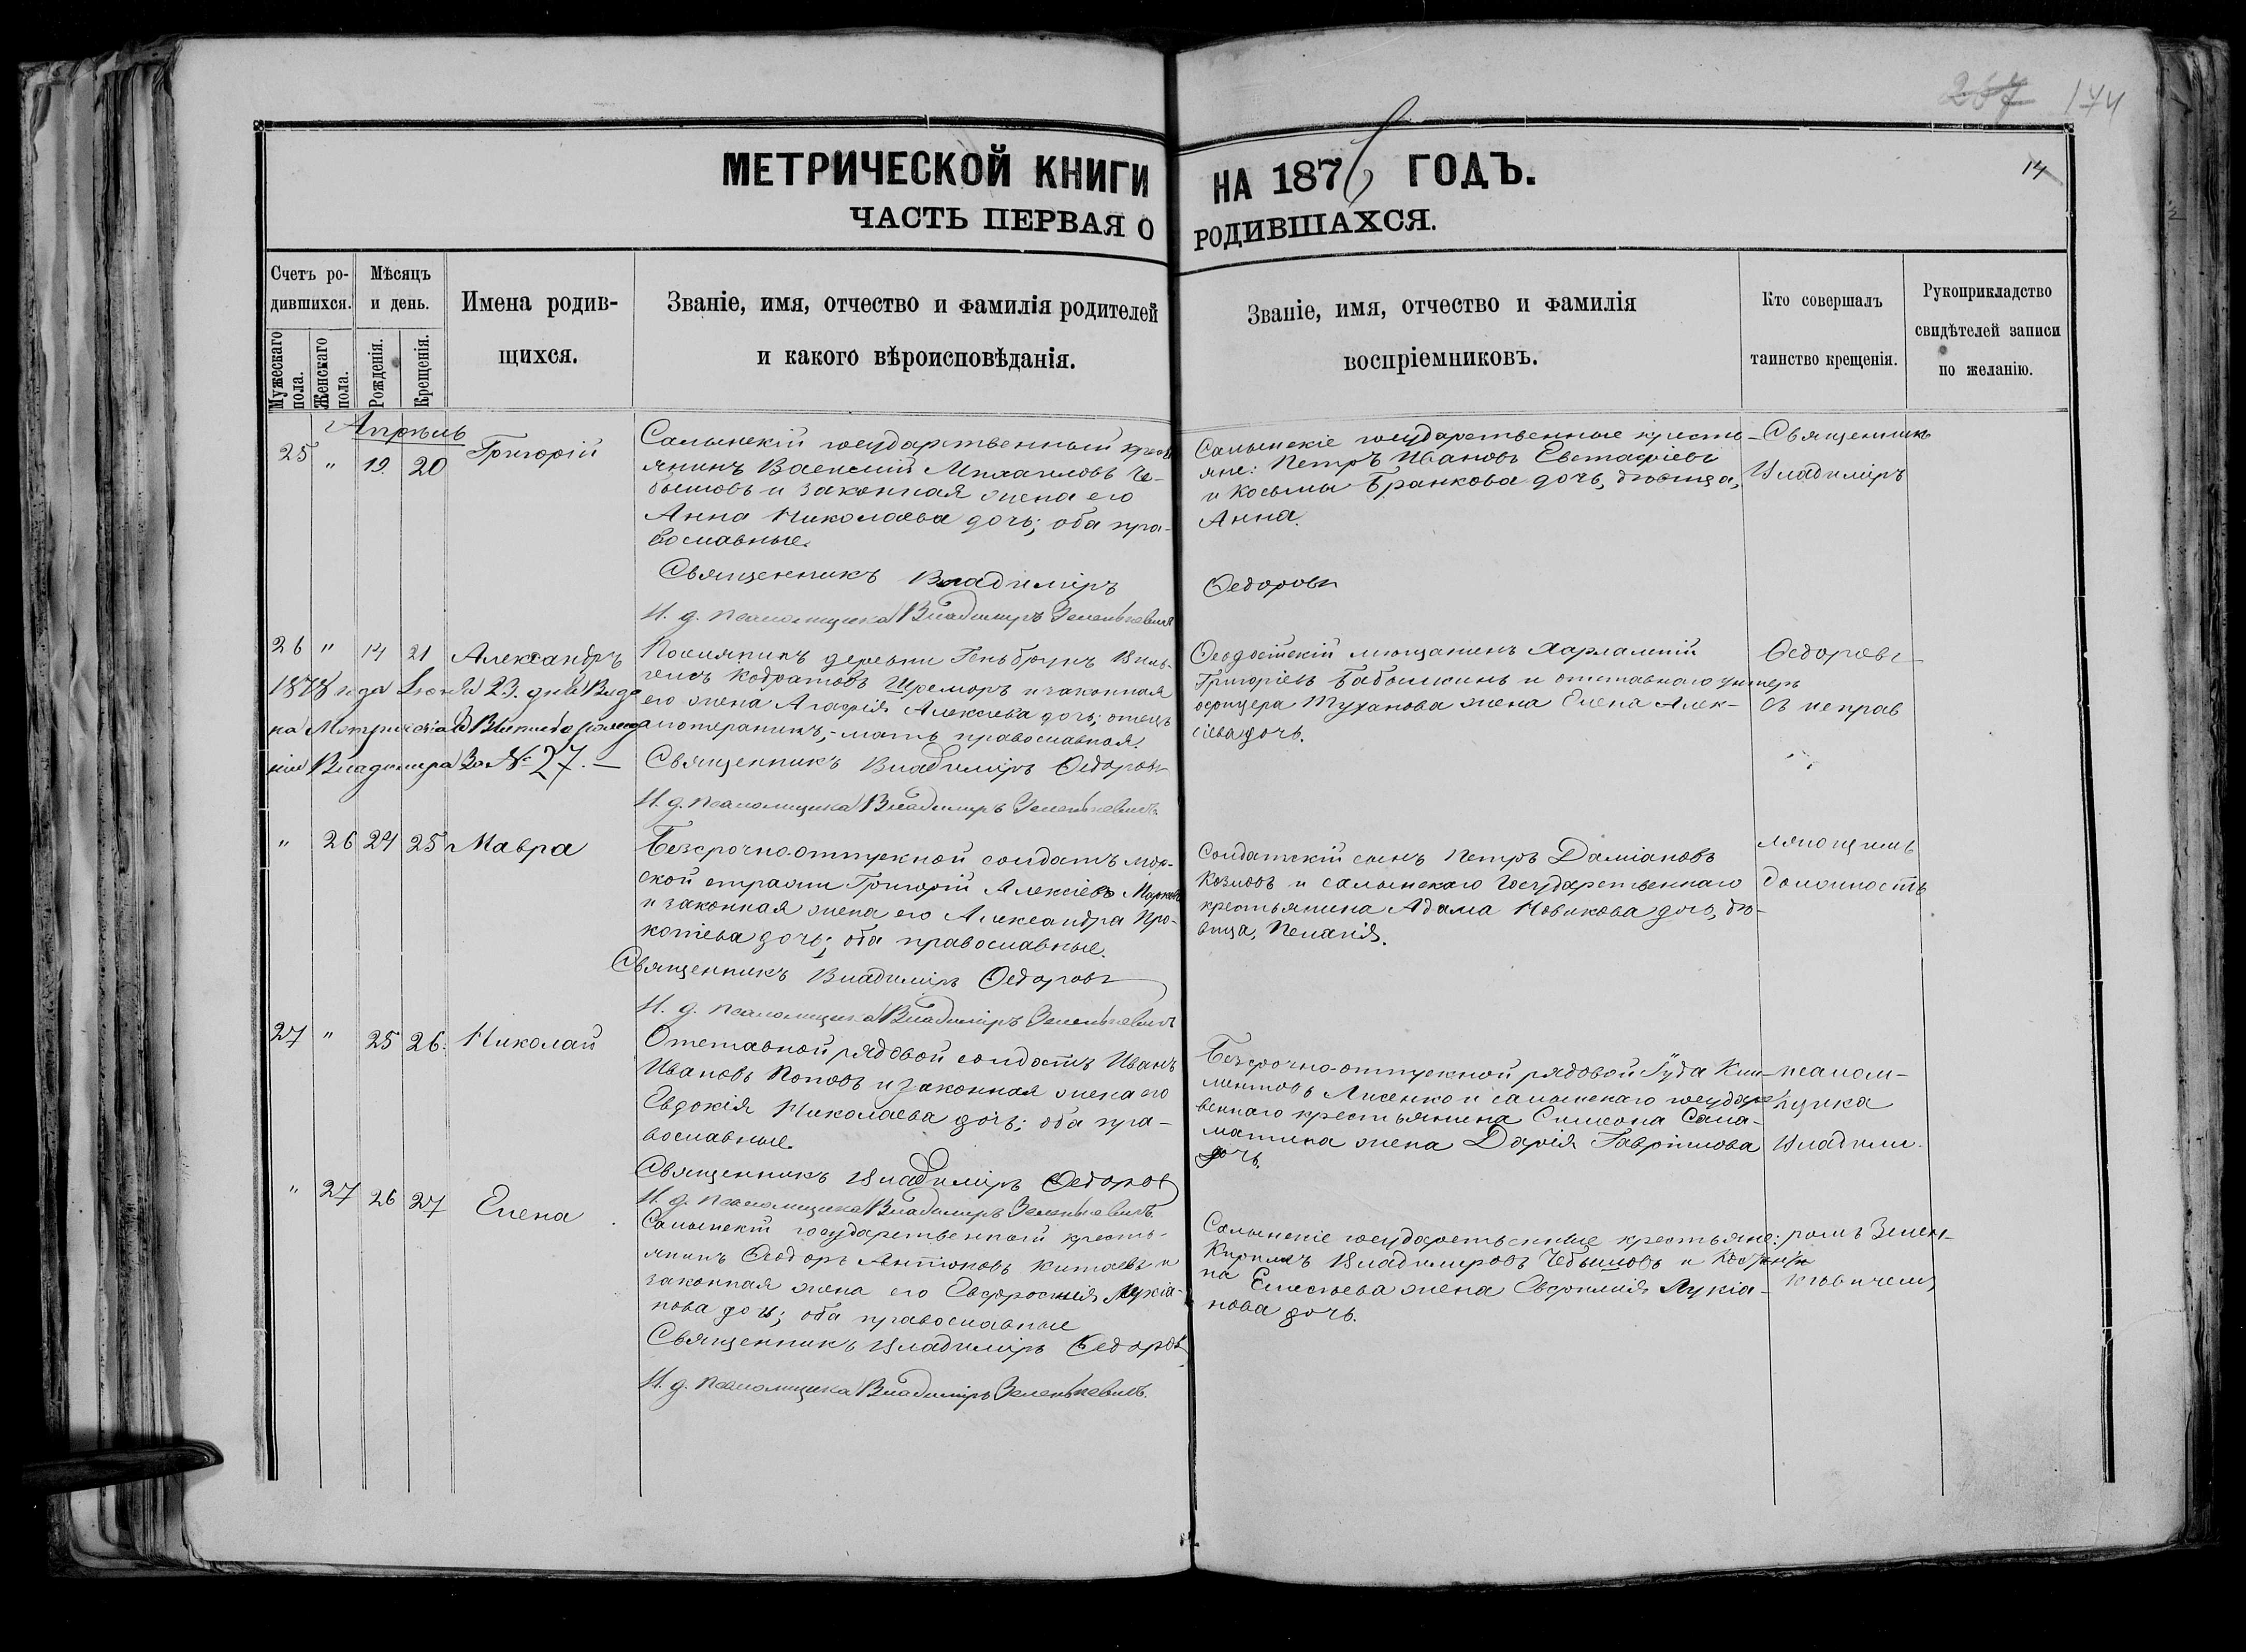 267 174
14
МЕТРИЧЕСКОЙ КНИГИ НА 1876 ГОДЪ.
ЧАСТЬ ПЕРВАЯ О РОДИВШАХСЯ.
Счетъ ро-
дившихся.
Мужескаго пола.
Женскаго пола.
Мѣсяцъ
и день.
Рожденія.
Крещенія.
Имена родив-
щихся.
Званіе, имя, отчество и фамилія родителей
и какого вѣроисповѣданія.
Званіе, имя, отчество и фамилія
воспріемниковъ.
Кто совершалъ
таинство крещенія.
Рукоприкладство
свидѣтелей записи
по желанію.
Апрѣль
25 " 19 20 Григорій
Салынскій государственный крест
янинъ Василій Михаиловъ Че-
бышовъ и законная жена его
Анна Николаева дочь; оба пра-
вославные.
Священникъ Владиміръ Ѳедоровъ
И. д. псаломщика Владиміръ Зеленкевичъ
Салынскіе государственные кресть-
яне: Петръ Ивановъ Евстафіевъ
и Косьмы Бранкова дочь, дѣвица,
Анна.
Священникъ
Владиміръ
26 " 14 21 Александръ
1878 года Іюня 23. дня Выда
на Метрическа
Владимира За № 27. —
Поселянинъ деревни Виль-
гелмъ Кодратовъ Шреморъ и законная
его жена Агафія Алексѣева дочь; отецъ
лютеранинъ, - мать православная.
Священникъ Владиміръ Ѳедоровъ
И. д. псаломщика Владиміръ Зеленкевичъ
Ѳеодосійскій мѣщанинъ Харлампій
Григоріевъ Бабышкинъ и отставнаго унтеръ
офицера Туханова жена Елена Алек-
сіева дочь.
Ѳедоровъ
съ исправ
" 26 24 25 Мавра
Безсрочно-отпускной солдатъ мор-
ской стражи Григорій Алексіевъ Марковъ
и законная жена его Александра Про-
копіева дочь; оба православные.
Священникъ Владиміръ Ѳедоровъ
И. д. псаломщика Владиміръ Зеленкевичъ
Солдатскій сынъ Петръ Даміановъ
Козловъ и салынскаго государственнаго
крестьянина Адама Новикова дочь, дѣ-
вица, Пелагія.
ляющимъ
должность
27 " 25 26. Николай
Отставной рядовой солдатъ Иванъ
Ивановъ Поповъ и законная жена его
Евдокія Николаева дочь; оба пра-
вославные.
Священникъ Владиміръ Ѳедоровъ
И. д. псаломщика Владиміръ Зеленкевичъ
Безсрочно-отпускной рядовой Іуда Кли-
ментовъ Лисенко и салынскаго государст
веннаго крестьянина Симеона Сала-
матина жена Дарія Гавріилова
дочь.
псалом-
щика
Владими-
" 27 26 27 Елена
Салынскій государственный кресть-
янинъ Ѳеодоръ Антоновъ Китаевъ и
законная жена его Евфросинія Лукіа-
нова дочь; оба православные
Священникъ Владиміръ Ѳедоровъ
И. д. псаломщика Владиміръ Зеленкевичъ.
Салынскіе государственные крестьяне:
Кирилъ Владимировъ Чебышовъ и
на Елисѣева жена Евфимія Лукіа-
нова дочь.
ромъ Зелен-
кевичемъ